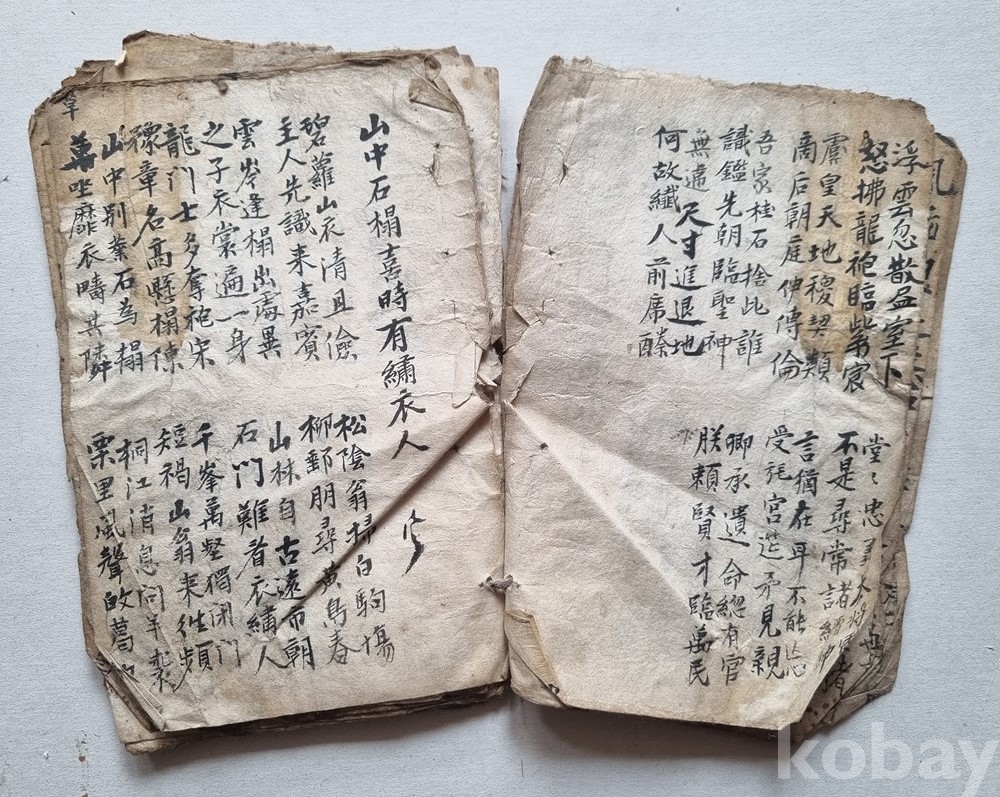 浮雲忽散 堂下
怒拂龍袍臨紫宸
虞皇天地稷契類
商后朝庭伊傅倫
吾家桂石捨此誰
識鑑先朝臨聖神
無違尺寸進退地
何故纖人前席
堂〻忠
不是尋常諸縉紳
言猶在耳不能忘
受託宮 才見親
卿承遺命緫有官
朕賴賢才臨萬民
山中石榻喜時有繡衣人
碧蘿山衣清且儉
主人先識来嘉賓
雲岑逢榻出處異
之子衣裳遍一身
龍门士多奪袍宋
豫章名高懸榻陳
山中別業石為榻
坐靡衣疇其隣
松陰翁掃白駒場
柳郵朋尋黄鳥春
山林自古遠市朝
石门難着衣繡人
千峯萬壑獨闭门
短褐山翁来往頻
桐江消息问羊裘
栗里風聲 葛
kobay